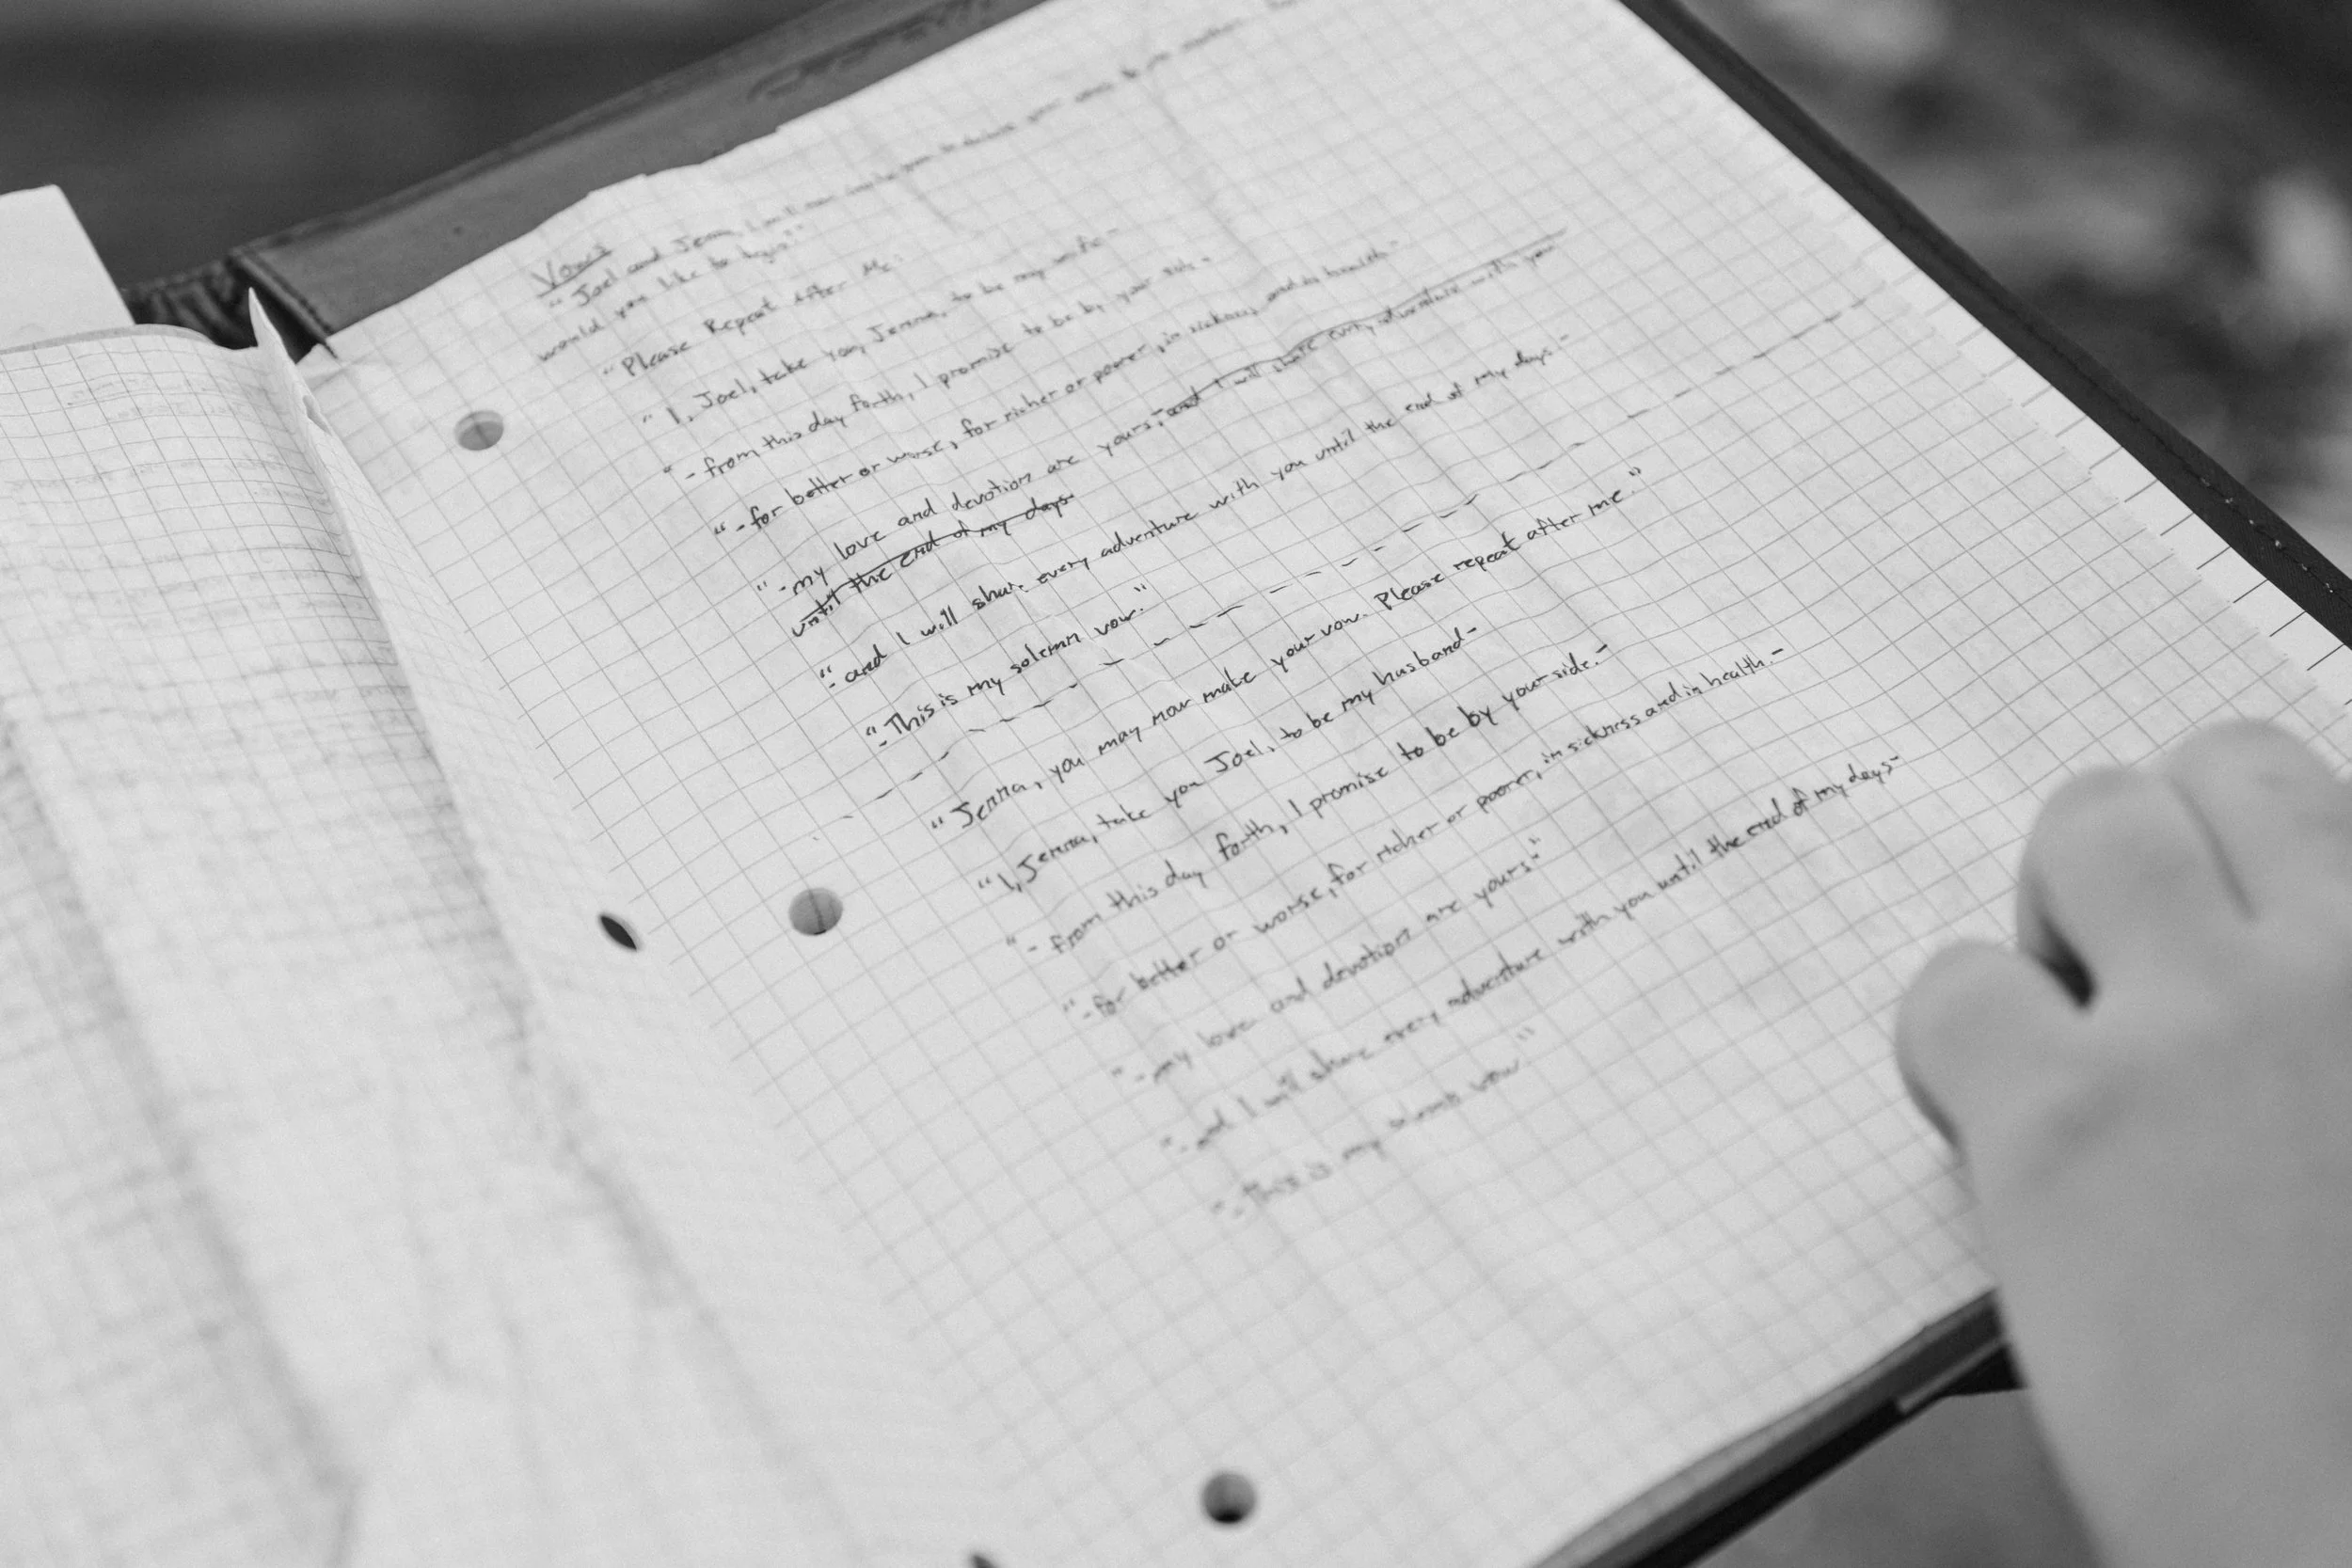 Vows
"Joel and Jenna, I will now invite you to declare your vows to one another.
would you like to begin?"
"Please Repeat After Me:
"I, Joel, take you, Jenna, to be my wife-
"-from this day forth, I promise to be by your side-
"-for better or worse, for richer or poorer, in sickness, and in health.-
"-my love and devotion are yours,-and I will share every adventure with you
until the end of my days-
"-and I will share every adventure with you until the end of my days.-
"-This is my solemn vow."
"Jenna, you may now make your vow. Please repeat after me."
"I, Jenna, take you Joel, to be my husband-
"-from this day forth, I promise to be by your side.-
"-for better or worse, for richer or poorer, in sickness and in health.-
"-my love and devotion are yours-"
"-and I will share every adventure with you until the end of my days-
"-This is my solemn vow."